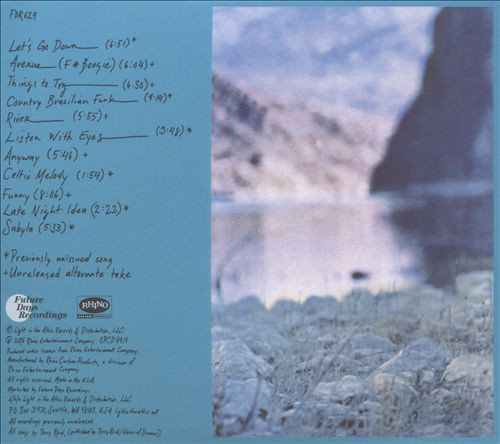 FDR629
Let's Go Down (6:51)*
Avenue (F# Boogie) (6:04)+
Things to Try (6:30)+
Country Brazilian Funk (9:14)*
River (5:55)+
Listen With Eyes (3:48)*
Anyway (5:46)+
Celtic Melody (1:54)*
Funny (8:06)+
Late Night Idea (2:22)*
Sabyla (5:33)*
*Previously unissued song
+Unreleased alternate take
Future
Days
Recordings
RHINO
CUSTOM PRODUCTS
© Light in the Attic Records & Distribution, LLC.
℗ 2016 Rhino Entertainment Company OPCD 8914
Produced under license from Rhino Entertainment Company.
Manufactured by Rhino Custom Products, a division of
Rhino Entertainment Company
All rights reserved. Made in the U.S.A.
Marketed by Future Days Recordings
c/o Light in the Attic Records & Distribution, LLC
P.O. Box 31970, Seattle, WA 98103, U.S.A. lightintheattic.net
All recordings previously unreleased.
All songs by Terry Reid, (published by Terry Reid/House of Dreams)